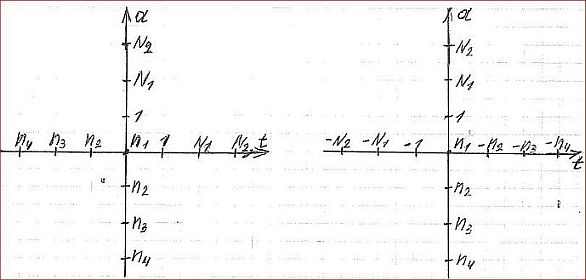 a
N₂
N₁
1
n₄ n₃ n₂ n₁ 1 N₁ N₂ t
n₂
n₃
n₄
a
N₂
N₁
1
-N₂ -N₁ -1 n₁ -n₂ -n₃ -n₄
t
n₂
n₃
n₄